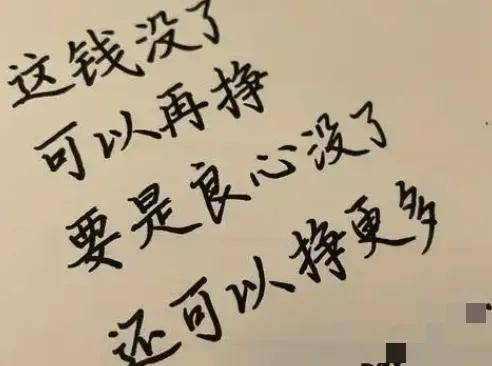 这钱没了
可以再挣
要是良心没了
还可以挣更多